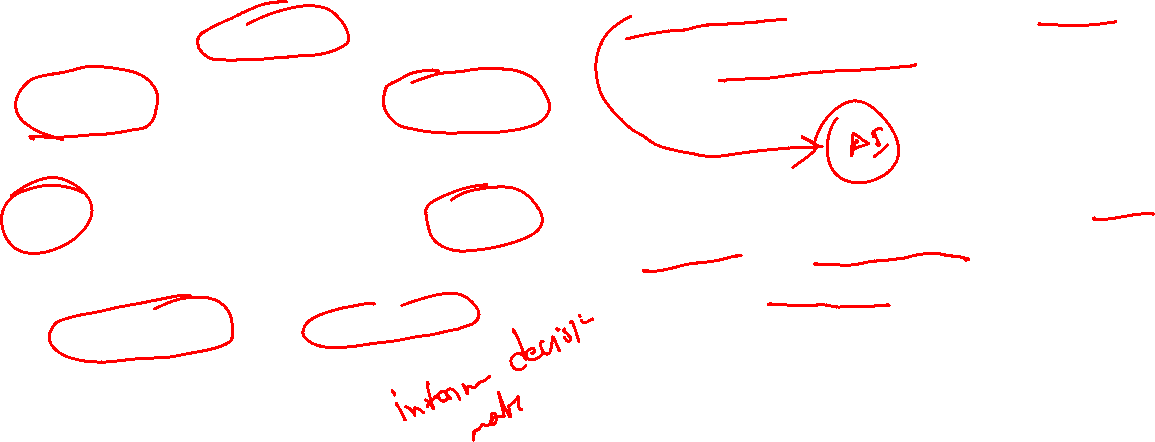 AI
inform decision
make